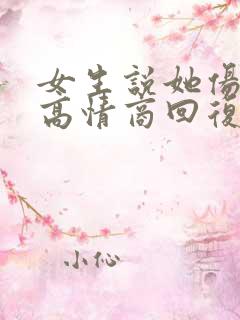 女生說她傷
高情商回復
小伈